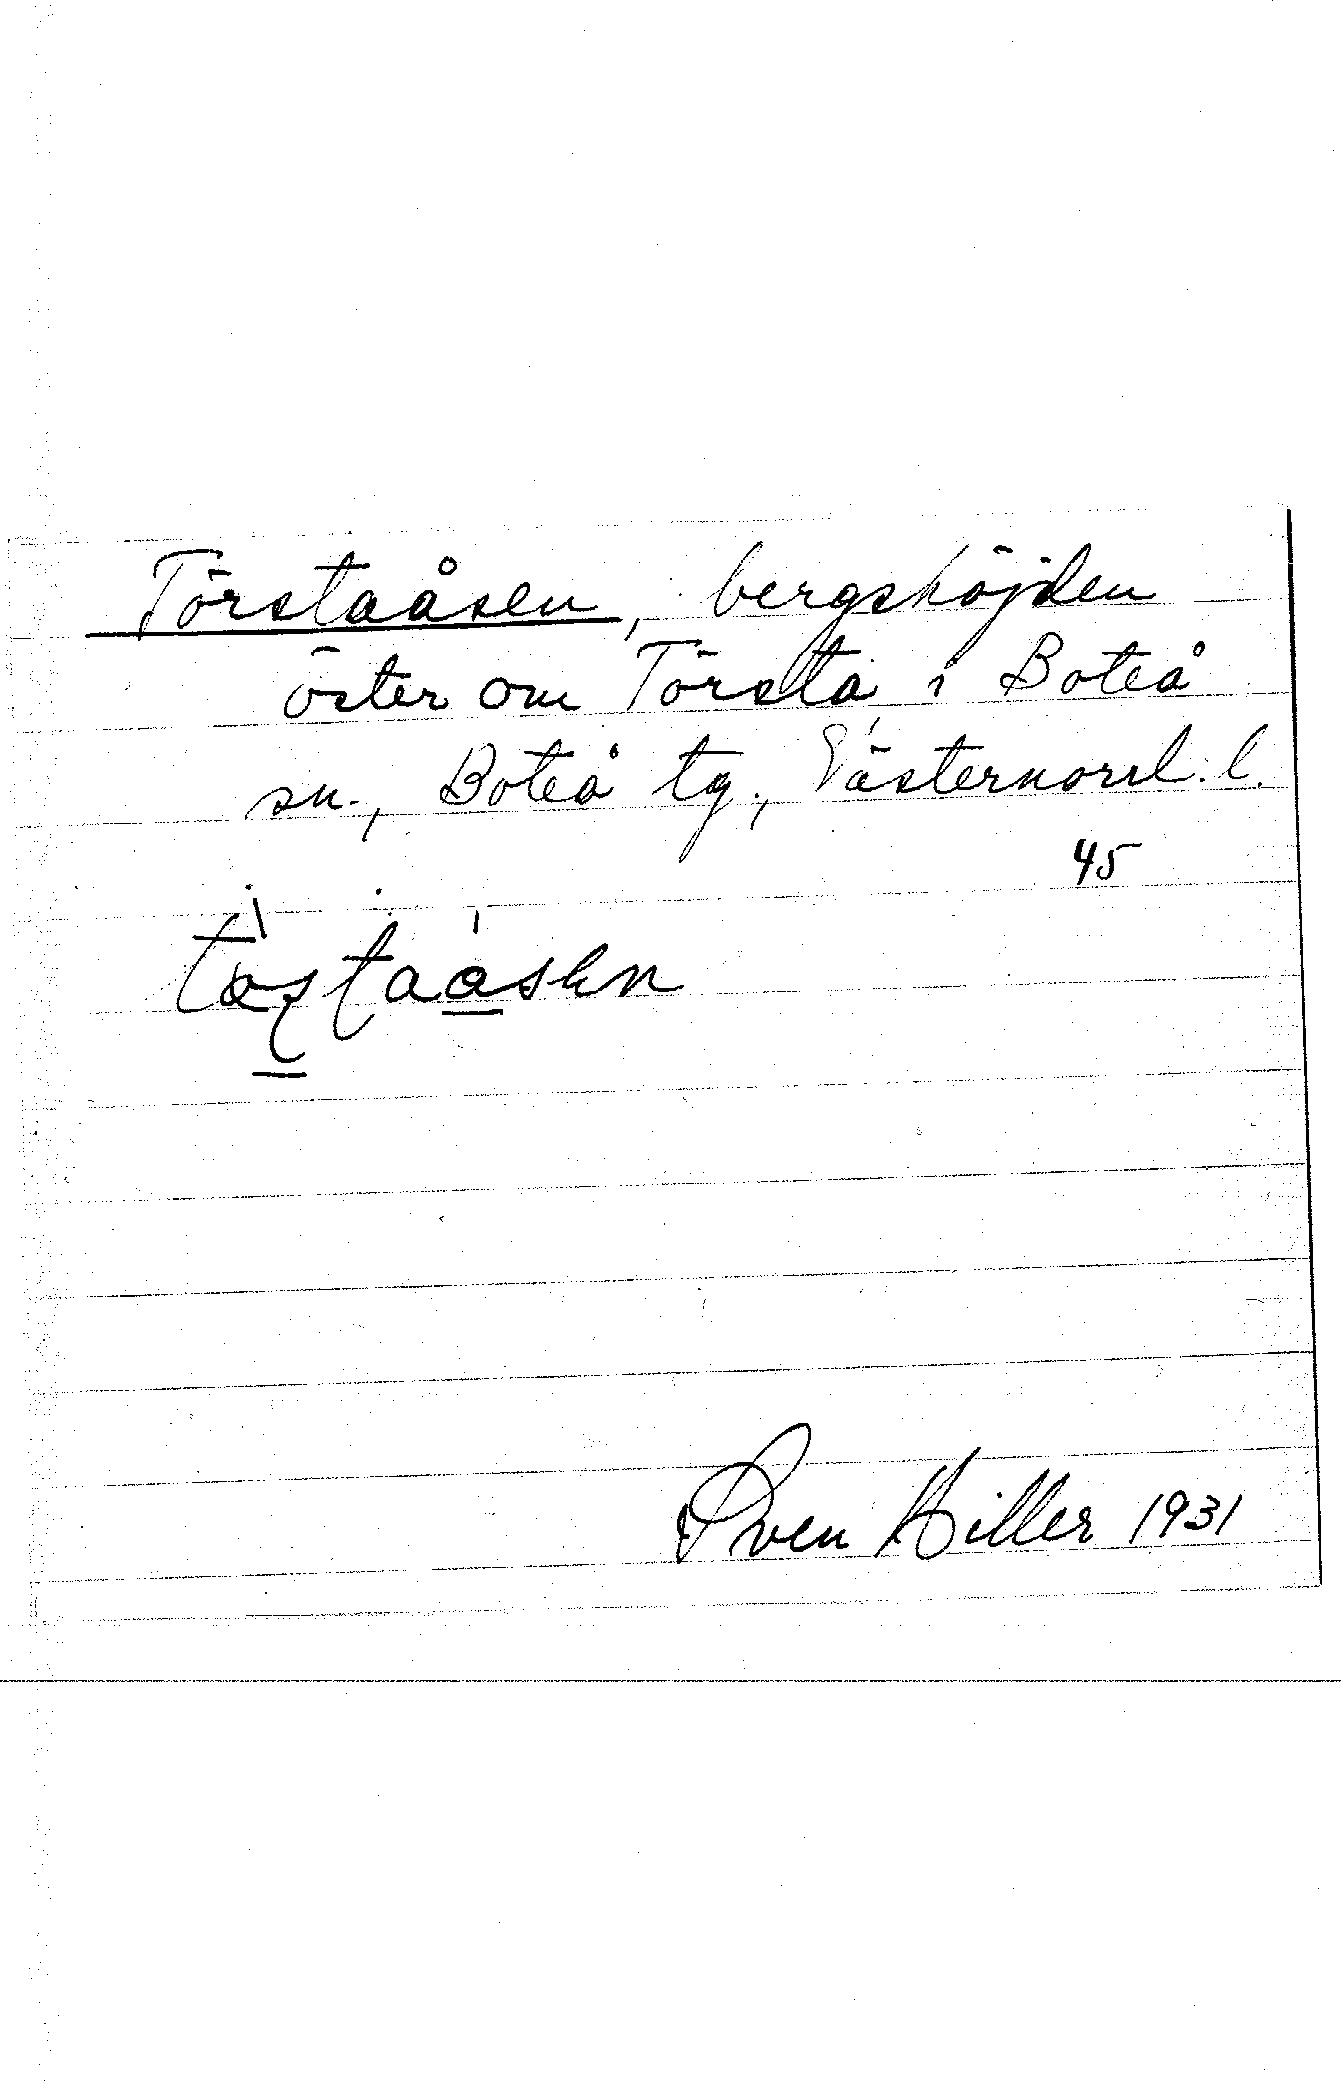 Törstaåsen, bergshöjden
öster om Törsta i Boteå
sn., Boteå tg., Västernorrl. l.
45
Sven Hiller 1931